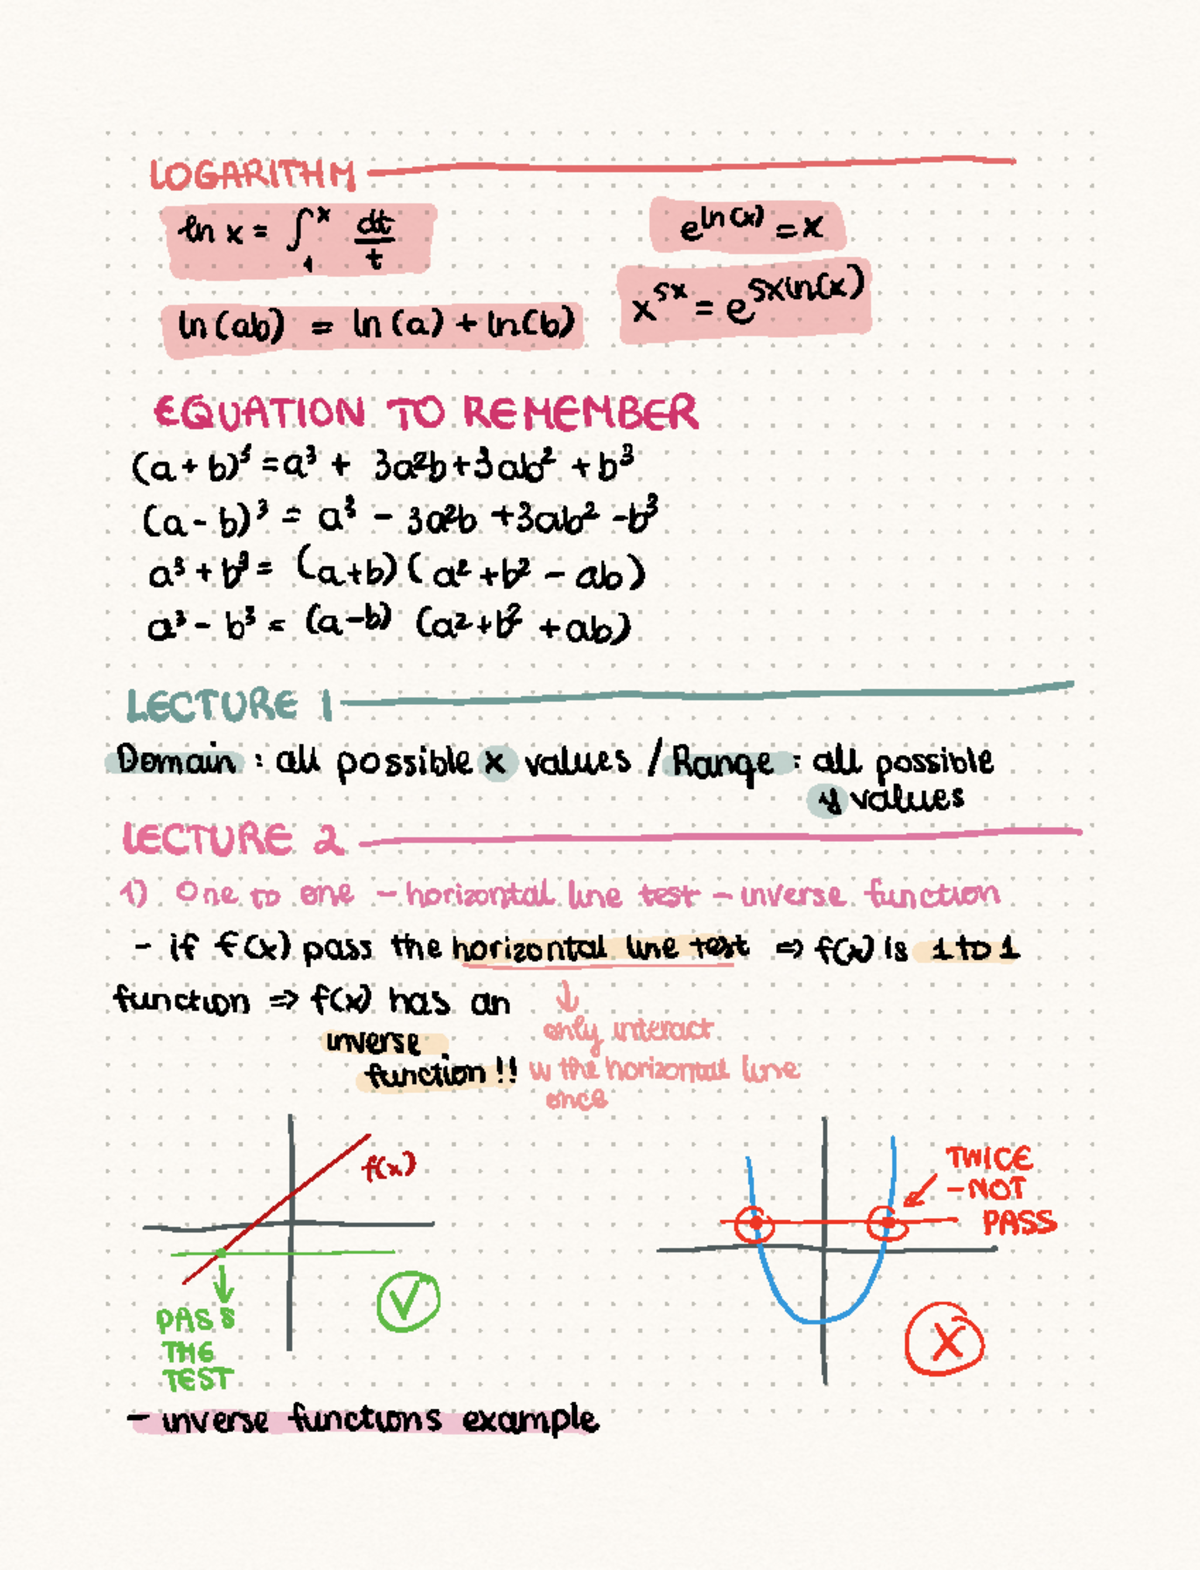 LOGARITHM
ln x = ∫₁ˣ dt/t
e^ln(x) = x
ln(ab) = ln(a) + ln(b)
x^5x = e^5xln(x)
EQUATION TO REMEMBER
(a + b)³ = a³ + 3a²b + 3ab² + b³
(a - b)³ = a³ - 3a²b + 3ab² - b³
a³ + b³ = (a+b)(a² + b² - ab)
a³ - b³ = (a-b) (a² + b² + ab)
LECTURE 1
Domain : all possible x values / Range : all possible
y values
LECTURE 2
1) One to one - horizontal line test - inverse function
- if f(x) pass the horizontal line test ⇒ f(x) is 1 to 1
function ⇒ f(x) has an
inverse
function !!
↓
only interact
w the horizontal line
once
f(x)
PASS
THE
TEST
V
TWICE
- NOT
PASS
X
- inverse functions example